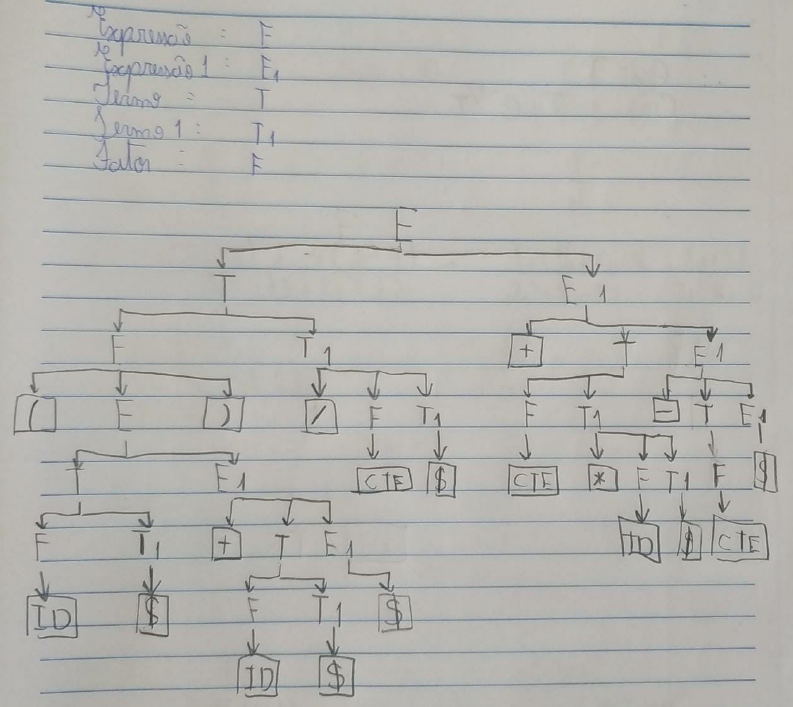 Expressão : E
Expressão 1 : E1
Termo : T
Termo 1 : T1
Fator : F
E
T E1
F T1 + T E1
( E ) / F T1 F T1 - T E1
T E1 CTE $ CTE * F T1 F $
F T1 + T E1 ID $ CTE
ID $ F T1 $
ID $